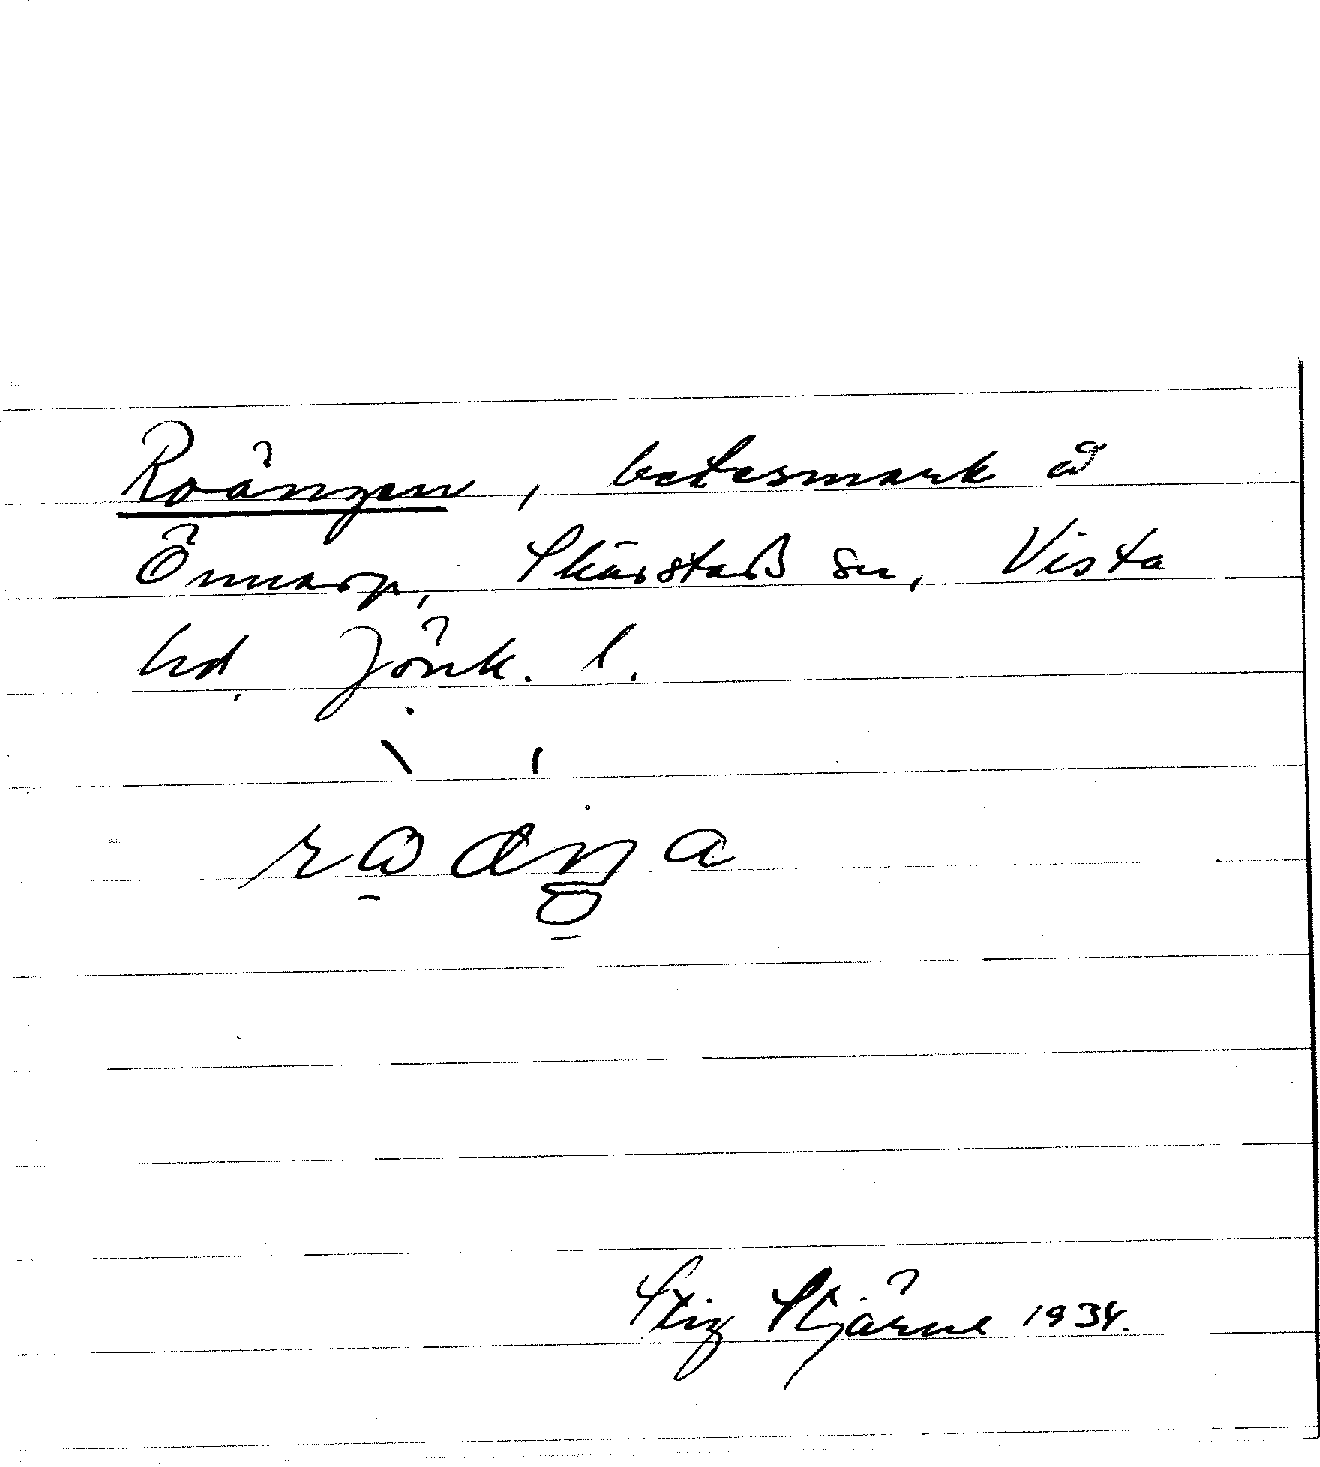 Roängen, betesmark å
Önnarp, Skärstads sn, Vista
hd. Jönk. l.
Stig Stjärne 1934.